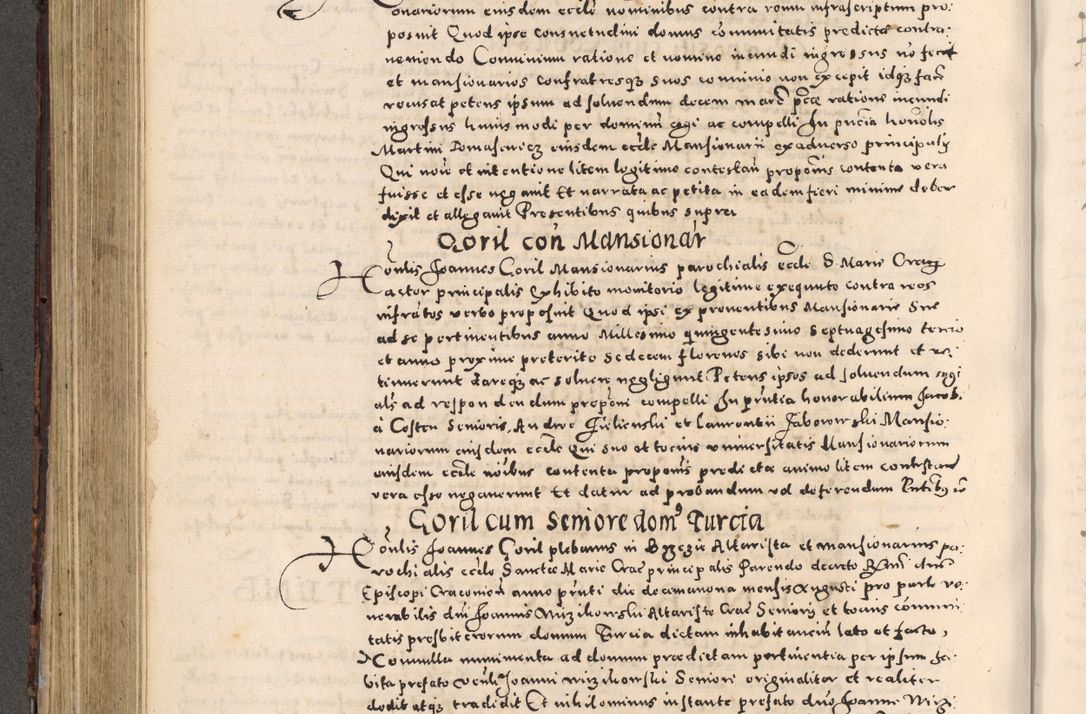 onariorum eiusdem eccle nominibus contra reum infrascriptum pro:
posuit Quod ipse consuetudini domus communitatis predicte contra:
ueniendo Conuiuium ratione et nomine iucundi ingressus no fecit
et mansionarios confratresq suos conuiuio non excepit idq facere
recusat petens ipsum ad soluendum decem marc pcae ratione iucundi
ingressus huiusmodi per dominum cogi ac compelli In pncia honolis
Martini Tomasewicz eiusdem eccle Mansionarii ex aduerso principalis
Qui no et intentione litem legitime contestan propositis contenta vera
fuisse et esse negauit Et narrata ac petita in eadem fieri minime debere
dixit et allegauit Presentibus quibus supra
Goril con Mansionar
Honlis Joannes Goril Mansionarius parochialis eccle S. Marie Crac
actor principalis Exhibito monitorio legitime exequuto contra reos
infratos verbo proposuit Quod ipsi ex prouentibus Mansionarie sue
ad se pertinentibus anno Millesimo quingentesimo septuagesimo tercio
et anno proxime preterito sedecem florenos sibi non dederunt et re:
tinuerunt dareq ac soluere negligunt Petens ipsos ad soluendum cogi
als ad respondendum proponi compelli In pntia honorabilium Jacob.
a Costen Senioris, Andree Jielienski et Laurentii Jaborowski Mansio:
nariorum eiusdem eccle Qui suo et tocius vniuersitatis Mansionariorum
eiusdem eccle noibus contenta propositis predictae animo litem contestand
vera esse negauerunt Et datur ad probandum vel deferendum Pntibus
Goril cum Seniore domo Turcia
Honlis Joannes Goril plebanus in Bzezie Altarista et mansionarius pa:
rochialis eccle Sanctae Marie Crac principalis Parendo decreto
Episcopi Cracovien anno pnti die decamanona mensis Augusti pro parte ve:
nerabilis dni Joannis Mizikowski Altariste Crac Senioris et tocius commni
tatis presbiterorum domum Turcia dictam inhabitanciu lato et facto,
Nonnulla munimenta ad domum praedictam pertinentia per ipsum
bita prefato Joanni Mizikowski Seniori originaliter et realiter
dedit atq tradidit Et nihilominus instante prefato dno Joanne Mizi